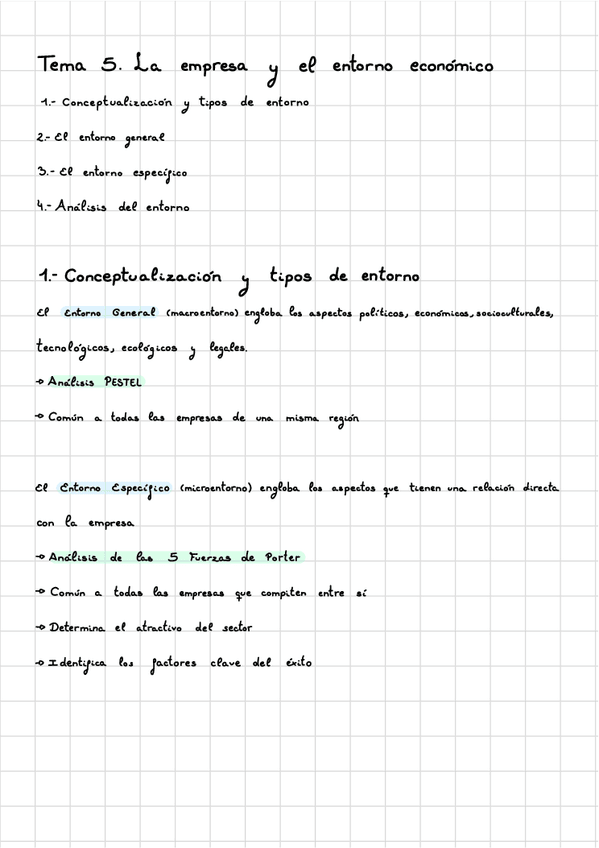 Tema 5. La empresa y el entorno económico
1.- Conceptualización y tipos de entorno
2.- El entorno general
3.- El entorno específico
4.- Análisis del entorno
1.- Conceptualización y tipos de entorno
El Entorno General (macroentorno) engloba los aspectos políticos, económicos, socioculturales,
tecnológicos, ecológicos y legales.
→ Análisis PESTEL
→ Común a todas las empresas de una misma región
El Entorno Específico (microentorno) engloba los aspectos que tienen una relación directa
con la empresa
→ Análisis de las 5 Fuerzas de Porter
→ Común a todas las empresas que compiten entre sí
→ Determina el atractivo del sector
→ Identifica los factores clave del éxito